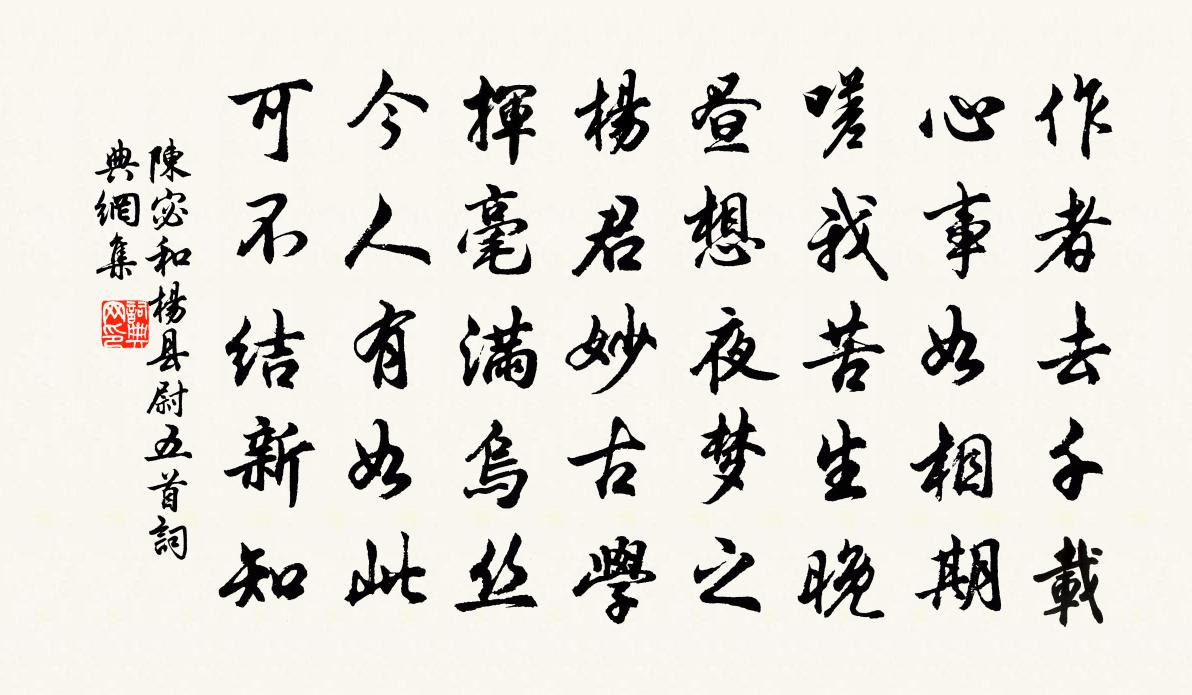 作者去千載
心事如相期
嗟我苦生晚
昼想夜梦之
楊君妙古學
揮毫滿烏丝
今人有如此
可不结新知
陳宓和楊县尉五首詞
典網集
詞典
网印